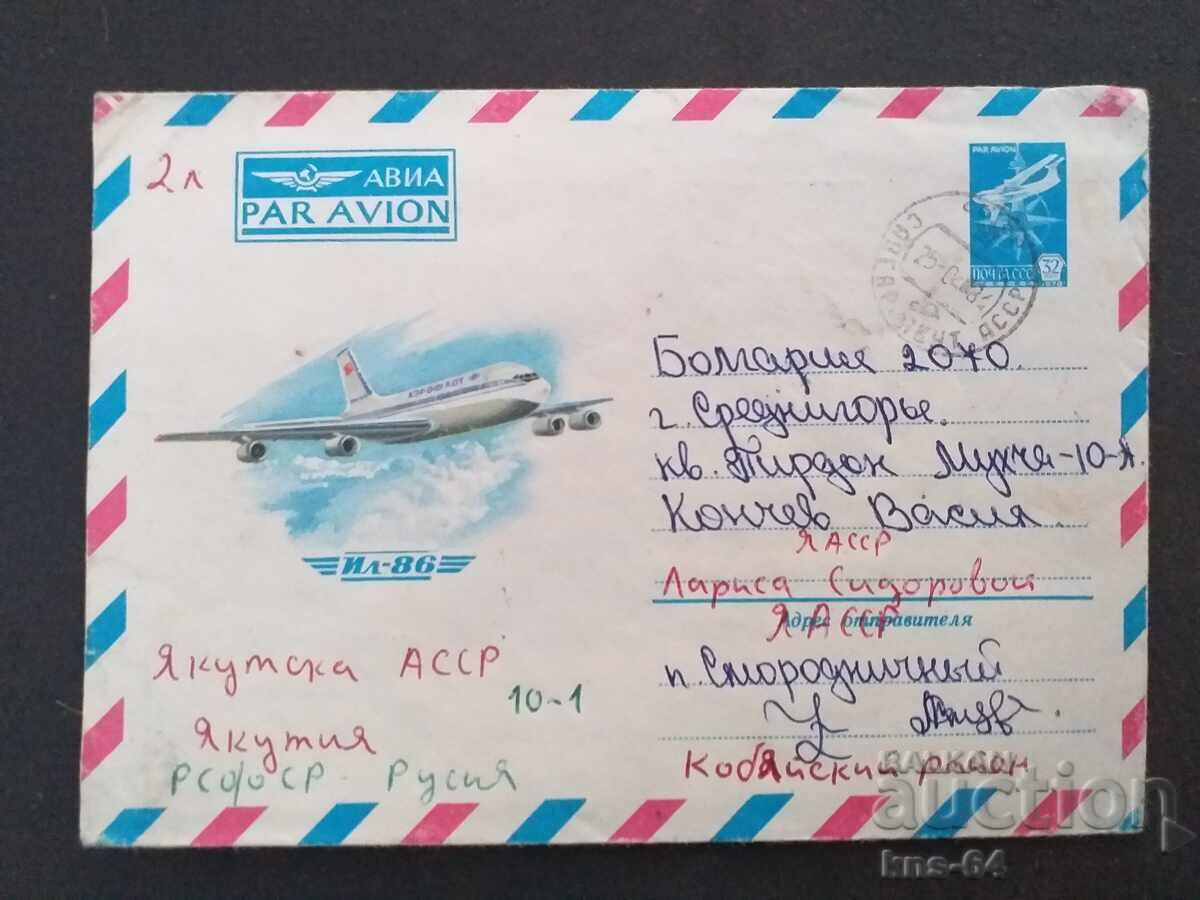 2л
АВИА
PAR AVION
PAR AVION
ПОЧТА СССР
32
25-
АССР
АЭРОФЛОТ
Ил-86
Болгария 2070.
г. Средnигорье.
кв. Пирдоп
Кончев Васил
ЯАССР
Лариса Сидоровой
Адрес отправителя
ЯАССР
п. Смородничный
Кобяйский район
Якутска АССР
10-1
Якутия
РСФСР - Русия
BALKAN
auction
kns-64